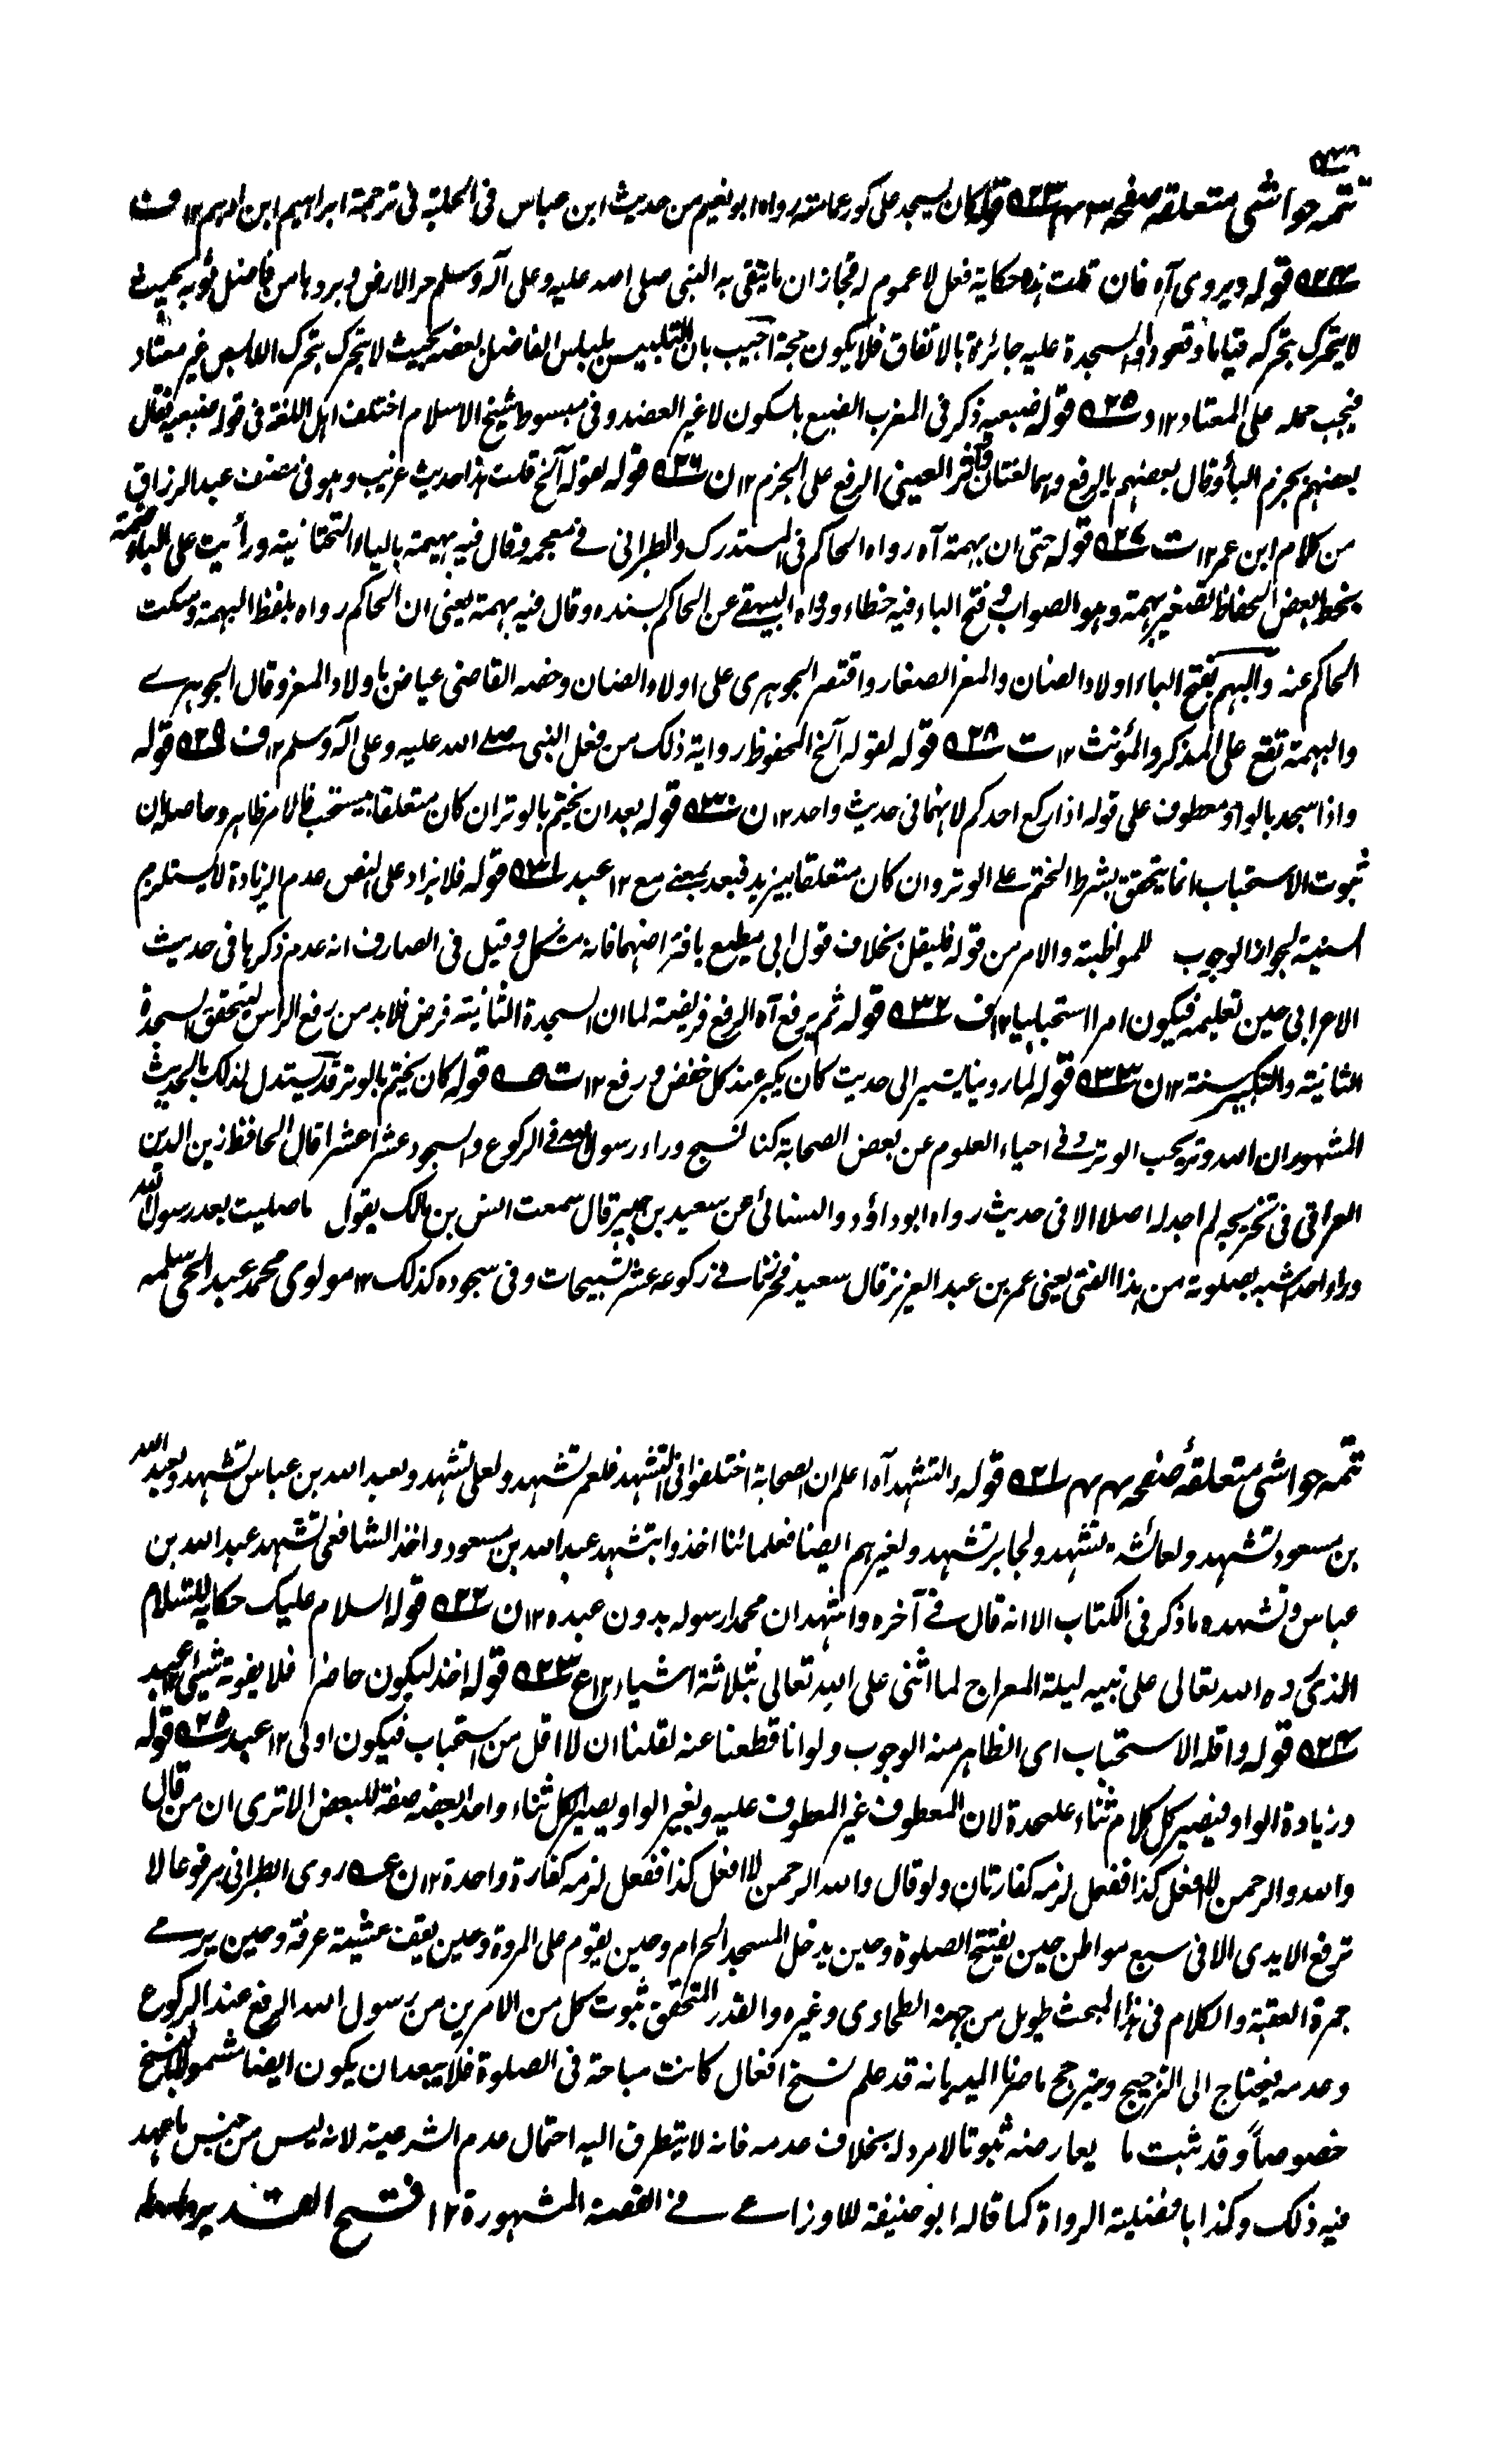 تتمہ حواشی متعلقہ صفحہ ۴۳ ۵۲۳ قولہ كان يسجد على كور عمامته رواه ابو نعيم من حديث ابن عباس فى الحلية فى ترجمة ابراهيم ابن ادهم ۱۲ ت
۵۲۴ قوله ويروى آه فان قلت هذه حكاية فعل لا عموم له فجاز ان ما يتقى به النبى صلى الله عليه وعلى آله وسلم حر الارض وبردها من فاضل ثوبه بحيث
لا يتحرك بتحركه قياما وقعودا والسجدة عليه جائزة بالاتفاق فلا يكون حجة اجيب بان التلبيس بلباس الفاضل بعضه بحيث لا يتحرك بتحرك اللابس غير معتاد
فيجب حمله على المعتاد ۱۲ د ۵۲۵ قوله ضبعيه ذكر فى المغرب الضبع بالسكون لا غير العضد وفى مبسوط شيخ الاسلام اختلف اهل اللغة فى قوله ضبعيه فقال
بعضهم بجزم الباء وقال بعضهم بالرفع وهما لغتان وآثر العينى الرفع على الجزم ۱۲ ن ۵۲۶ قوله لقوله آلخ قلت هذا حديث غريب وهو فى مصنف عبد الرزاق
من كلام ابن عمر ۱۲ ت ۵۲۷ قوله حتى ان بهمة آه رواه الحاكم فى المستدرك والطبرانى فے معجمه وقال فيه بهيمة بالياء التحتانية ورأيت على الباء ضمة
بخط بعض الحفاظ تصغير بهمة وهو الصواب وفتح الباء فيه خطاء ورواه البيهقے عن الحاكم بسنده وقال فيه بهمة يعنى ان الحاكم رواه بلفظ البهمة وسكت
الحاكم عنه والبهم بفتح الباء اولاد الضان والمعز الصغار واقتصر الجوهرى على اولاد الضان وخصه القاضى عياض باولاد المعز وقال الجوهرے
والبهمة تقع على المذكر والمؤنث ۱۲ ت ۵۲۸ قوله لقوله آلخ المحفوظ رواية ذلك من فعل النبى صلے الله عليه وعلى آله وسلم ۱۲ ف ۵۲۹ قوله
واذا سجد بالواو معطوف على قوله اذا ركع احدكم لانهما فى حديث واحد ۱۲ ن ۵۳۰ قوله بعد ان يختم بالوتر ان كان متعلقا بيستحب فالامر ظاهر وحاصله ان
ثبوت الاستحباب انما يتحقق بشرط الختم علے الوتر وان كان متعلقا بيزيد فبعد بمعنے مع ۱۲ عبد ۵۳۱ قوله فلا يزاد على النص عدم الزيادة لا يستلزم
السنية لجواز الوجوب للمواظبة والامر من قوله فليقل بخلاف قول ابى مطيع بافتراضها فانه مشكل وقيل فى الصارف انه عدم ذكرها فى حديث
الاعرابى حين تعليمه فيكون امرا استحبابيا ۱۲ ف ۵۳۲ قوله ثم يرفع آه الرفع فريضة لما ان السجدة الثانية فرض فلا بد من رفع الراس ليتحقق السجدة
الثانية والتكبير سنة ۱۲ ن ۵۳۳ قوله لما روينا يشير الى حديث كان يكبر عند كل خفض ورفع ۱۲ ت قوله كان يختم بالوتر قد يستدل لذلك بالحديث
المشهور ان الله وتر يحب الوتر وفے احياء العلوم عن بعض الصحابة كنا نسبح وراء رسول الله فى الركوع والسجود عشرا عشرا قال الحافظ زين الدين
العراقى فى تخريجه لم اجد له اصلا الا فى حديث رواه ابو داؤد والنسائى عن سعيد بن جبير قال سمعت انس بن مالك يقول ما صليت بعد رسول الله
وراء احد اشبه بصلوته من هذا الفتى يعنى عمر بن عبد العزيز قال سعيد فحزرنا فے ركوعه عشر تسبيحات وفى سجوده كذلك ۱۲ مولوى محمد عبد الحى سلمه
تتمہ حواشی متعلقۂ صفحہ ۴۴ ۵۲۱ قوله والتشهد آه اعلم ان الصحابة اختلفوا فى التشهد فلعمر تشهد ولعلى تشهد ولعبد الله بن عباس تشهد ولعبد الله
بن مسعود تشهد ولعائشة تشهد ولجابر تشهد ولغيرهم ايضا فعلمائنا اخذوا بتشهد عبد الله بن مسعود واخذ الشافعى بتشهد عبد الله بن
عباس وتشهده ما ذكر فى الكتاب الا انه قال فے آخره واشهد ان محمدا رسوله بدون عبده ۱۲ ن ۵۲۲ قوله السلام عليك حكاية للسلام
الذى رده الله تعالى على نبيه ليلة المعراج لما اثنى على الله تعالى بثلاثة اشياء ۱۲ ع ۵۲۳ قوله اخذ ليكون حاضرا فلا يفوته شيئ ۱۲ عبد
۵۲۴ قوله واقله الاستحباب اى الظاهر منه الوجوب ولو انا قطعنا عنه لقلنا ان لا اقل من استحباب فيكون اولى ۱۲ عبد ۵۲۵ قوله
وزيادة الواو فيصير كل كلام ثناء علىحدة لان المعطوف غير المعطوف عليه وبغير الواو يصير الكل ثناء واحدا بعضه صفة للبعض الا ترى ان من قال
والله والرحمن لا افعل كذا ففعل لزمه كفارتان ولو قال والله الرحمن لا افعل كذا ففعل لزمه كفارة واحدة ۱۲ ن روى الطبرانى مرفوعا لا
ترفع الايدى الا فى سبع مواطن حين يفتتح الصلوة وحين يدخل المسجد الحرام وحين يقوم على المروة وحين يقف عشية عرفة وحين يرمے
جمرة العقبة والكلام فى هذا المبحث طويل من جهة الطحاوى وغيره والقدر المتحقق ثبوت كل من الامرين من رسول الله الرفع عند الركوع
وعدمه فيحتاج الى الترجيح ويترجح ما صرنا اليه بانه قد علم نسخ افعال كانت مباحة فى الصلوة فلا يبعد ان يكون ايضا مشمولا بالنسخ
خصوصاً وقد ثبت ما يعارضه ثبوتا لا مرد له بخلاف عدمه فانه لا يتطرق اليه احتمال عدم الشرعية لانه ليس من جنس ما عهد
فيه ذلك وكذا بافضلية الرواة كما قاله ابو حنيفة للاوزاعے فے القصة المشهورة ۱۲ فتح القدير